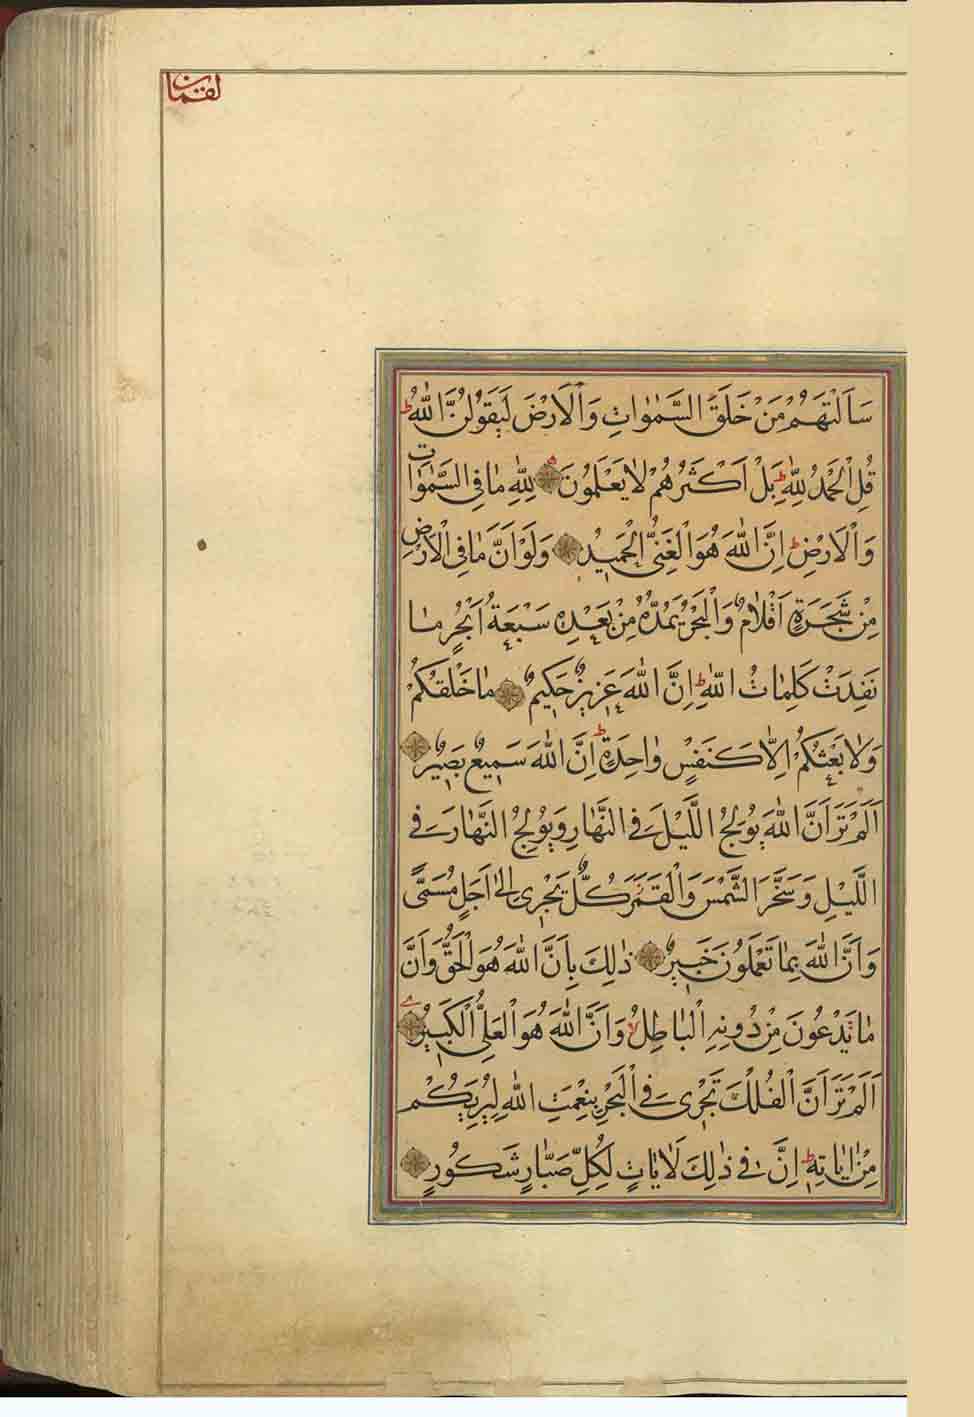 لقمان
سَاَلْتَهُمْ مَنْ خَلَقَ السَّمٰوَاتِ وَالْاَرْضَ لَيَقُولُنَّ اللّٰهُ ط
قُلِ الْحَمْدُ لِلّٰهِ ط بَلْ اَكْثَرُهُمْ لَا يَعْلَمُونَ لِلّٰهِ مَا فِى السَّمٰوَات
وَالْاَرْضِ ط اِنَّ اللّٰهَ هُوَ الْغَنِىُّ الْحَمِيدُ وَلَوْ اَنَّ مَا فِى الْاَرْضِ
مِنْ شَجَرَةٍ اَقْلَامٌ وَالْبَحْرُ يَمُدُّهُ مِنْ بَعْدِهِ سَبْعَةُ اَبْحُرٍ مَا
نَفِدَتْ كَلِمَاتُ اللّٰهِ ط اِنَّ اللّٰهَ عَزِيزٌ حَكِيمٌ مَا خَلْقُكُمْ
وَلَا بَعْثُكُمْ اِلَّا كَنَفْسٍ وَاحِدَةٍ ط اِنَّ اللّٰهَ سَمِيعٌ بَصِيرٌ
اَلَمْ تَرَ اَنَّ اللّٰهَ يُولِجُ اللَّيْلَ فِى النَّهَارِ وَيُولِجُ النَّهَارَ فِى
اللَّيْلِ وَسَخَّرَ الشَّمْسَ وَالْقَمَرَ كُلٌّ يَجْرِى اِلٰى اَجَلٍ مُسَمًّى
وَاَنَّ اللّٰهَ بِمَا تَعْمَلُونَ خَبِيرٌ ذٰلِكَ بِاَنَّ اللّٰهَ هُوَ الْحَقُّ وَاَنَّ
مَا يَدْعُونَ مِنْ دُونِهِ الْبَاطِلُ لا وَاَنَّ اللّٰهَ هُوَ الْعَلِىُّ الْكَبِيرُ
اَلَمْ تَرَ اَنَّ الْفُلْكَ تَجْرِى فِى الْبَحْرِ بِنِعْمَتِ اللّٰهِ لِيُرِيَكُمْ
مِنْ اٰيَاتِهِ ط اِنَّ فِى ذٰلِكَ لَاٰيَاتٍ لِكُلِّ صَبَّارٍ شَكُورٍ